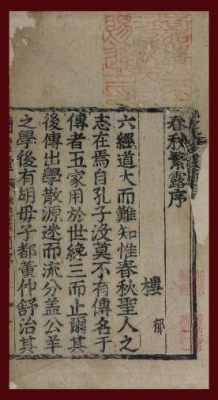 春秋繁露序
樓郁
六經道大而難知惟春秋聖人之
志在焉自孔子没莫不有傳名于
傳者五家用於世纔三而止爾其
後傳出學散源迷而流分盖公羊
之學後有胡毋子都董仲舒治其